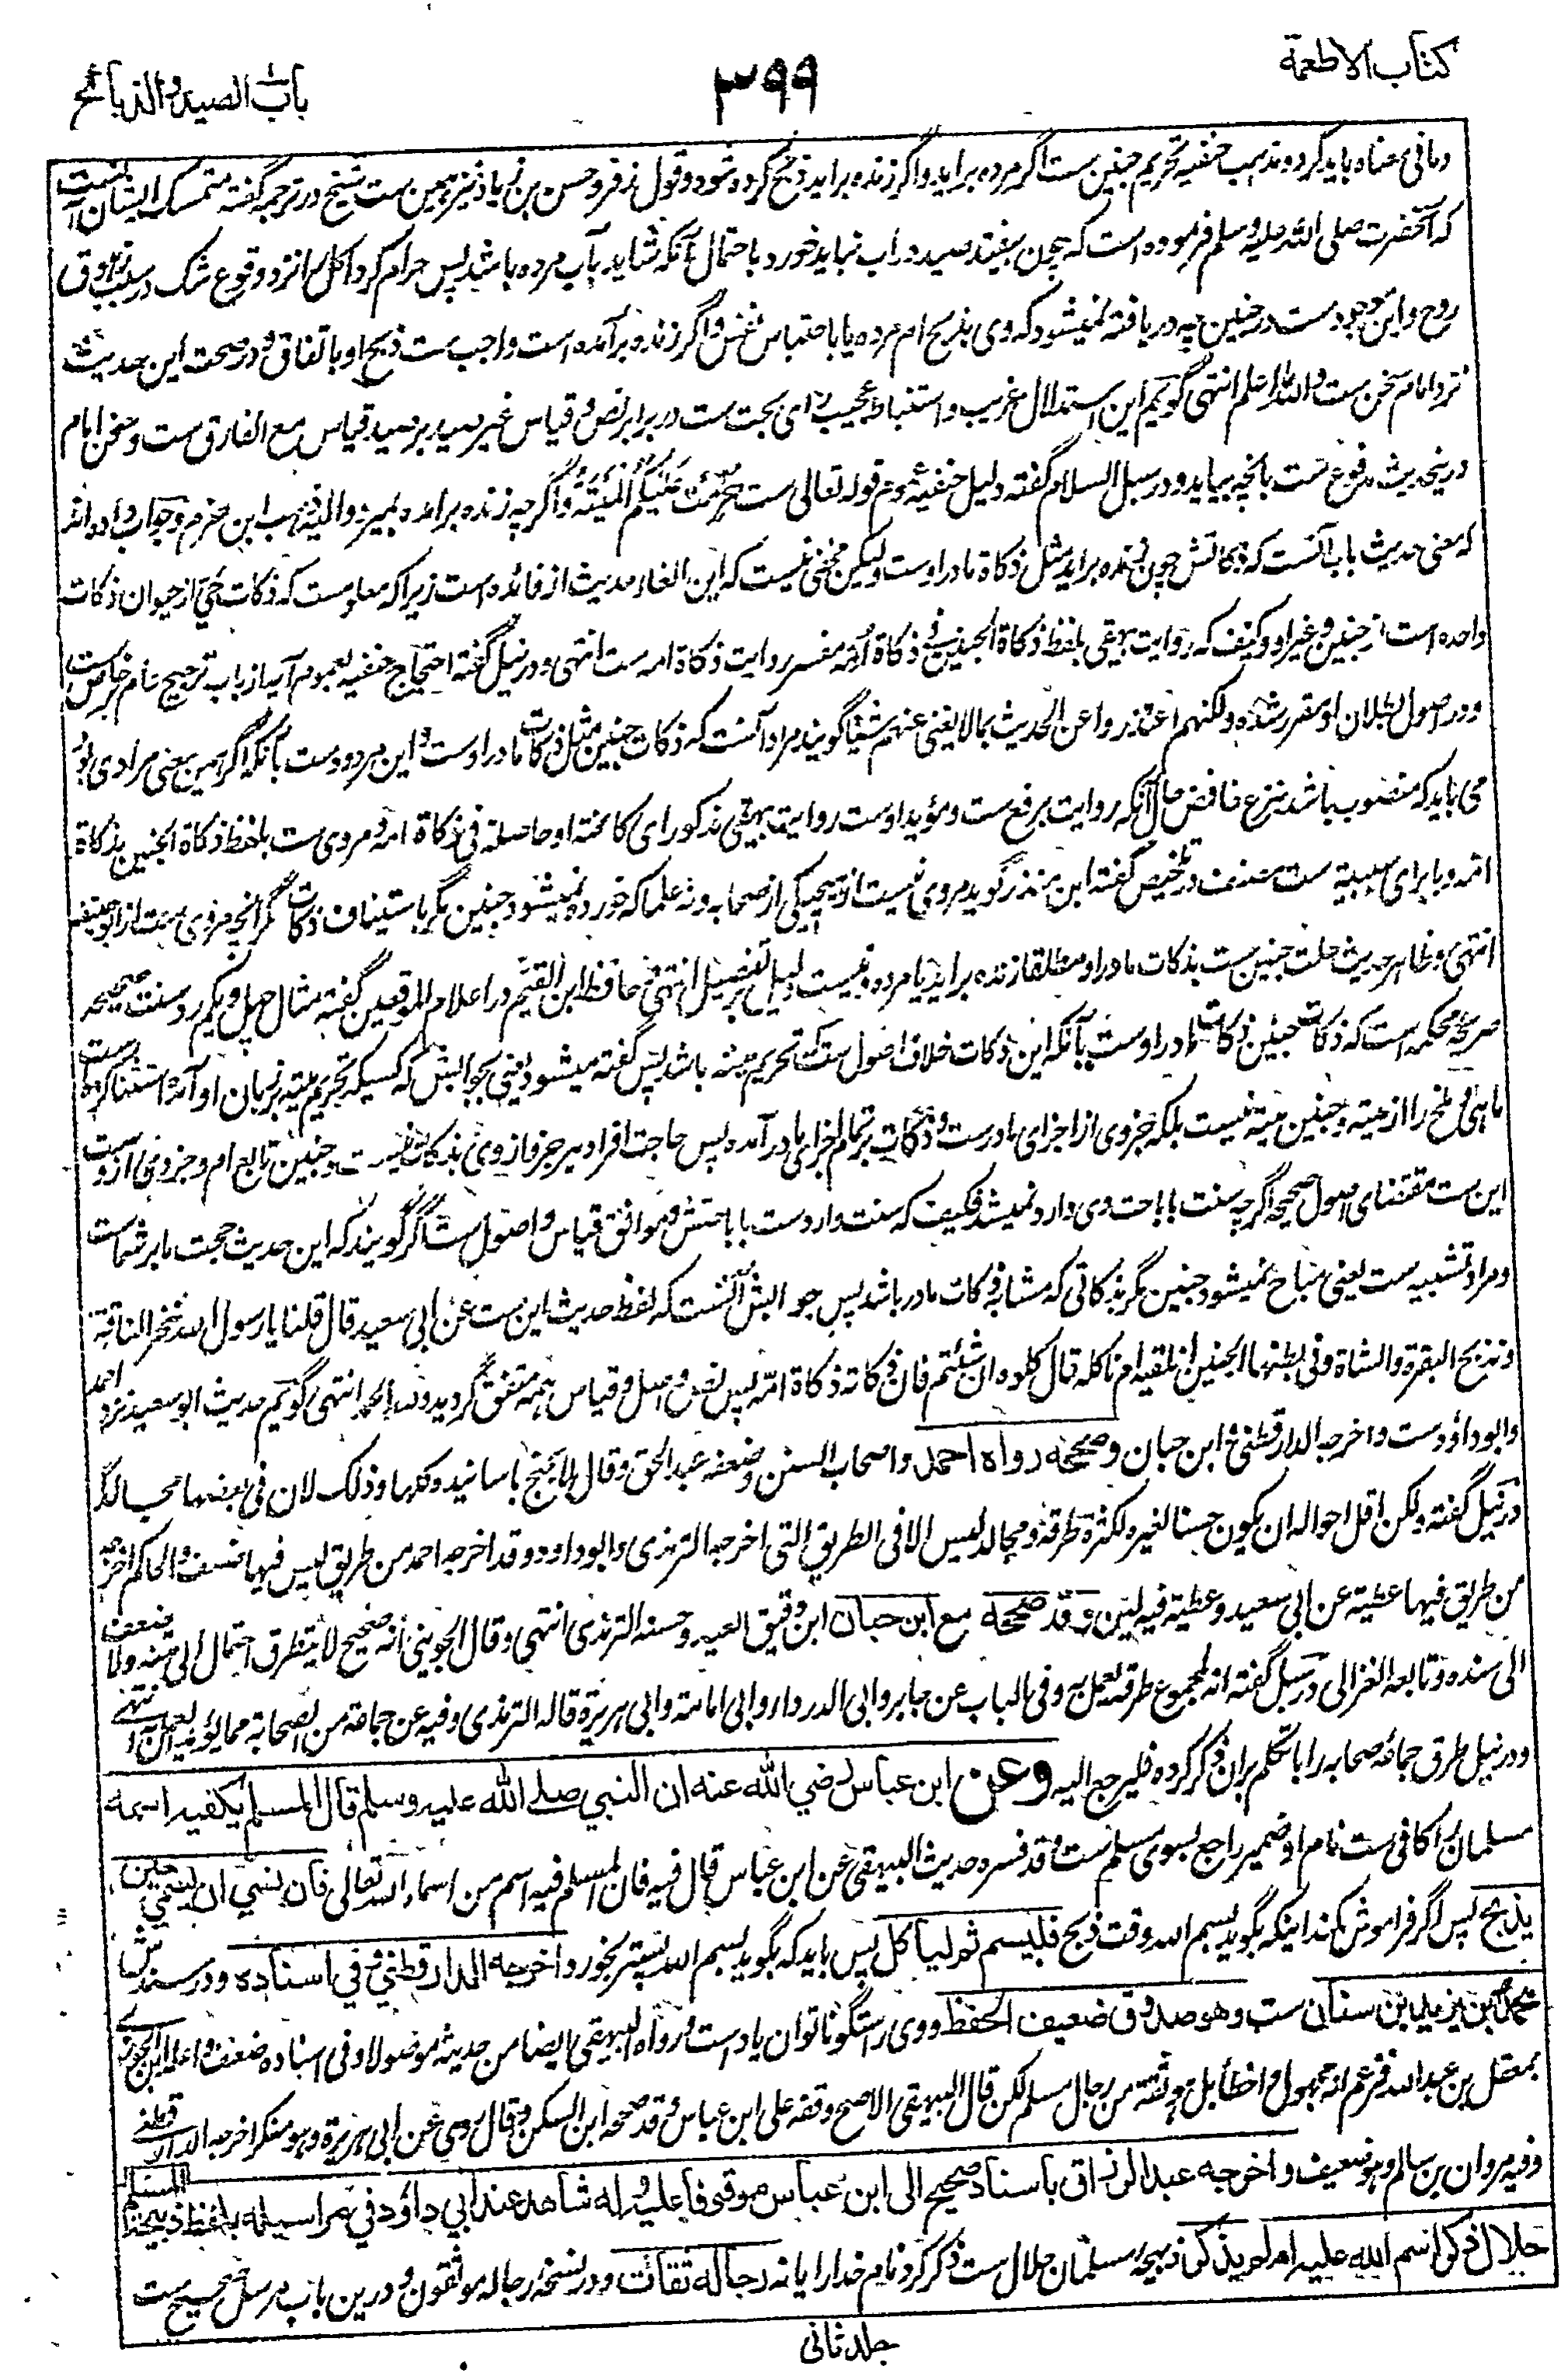 کتاب الاطعمة
۳۹۹
باب الصید والذبائح
ومافی معناه باید کرد و مذهب حنفیه تحریم جنین ست اگر مرده براید و اگر زنده براید ذبح کرده شود و قول زفر و حسن بن زیاد نیز همین ست شیخ در ترجمه گفته متمسک ایشان آنست
که آنحضرت صلی الله علیه وسلم فرموده است که چون بیفتد صید در اب نباید خورد باحتمال آنکه شاید بآب مرده باشد پس حرام کرد اکل را نزد وقوع شک در سبب زهوق
روح و این موجود ست در جنین چه دریافته نمیشود که وی بذبح ام مرده یا باحتباس نفس و اگر زنده برآمده است واجب ست ذبح او باتفاق و در صحت این حدیث
نزد امام سخن ست والله اعلم انتهی گویم این استدلال غریب و استنباط عجیب رای بحت ست در برابر نص و قیاس غیر صید بر صید قیاس مع الفارق ست و سخن امام
درینحدیث مدفوع ست بانچه بیاید و در سبل السلام گفته دلیل حنفیه عموم قوله تعالی ست حرمت علیکم المیتة و اگرچه زنده برامده بمیرد والیه ذهب ابن حزم و جواب داده اند
که معنی حدیث باب آنست که ذکاتش چون زنده براید مثل ذکاة مادر اوست ولیکن مخفی نیست که این الغاء حدیث از فائده است زیرا که معلومست که ذکات حی از حیوان ذکات
واحده است از جنین و غیر او و کیف که روایت بیهقی بلفظ ذکاة الجنین فی ذکاة امه مفسر روایت ذکاة امه ست انتهی و در نیل گفته احتجاج حنفیه بعموم آیه از باب ترجیح عام بر خاص ست
و در اصول بطلان او مقرر شده ولکنهم اعتذروا عن الحدیث بما لا یغنی عنهم شیئا گویند مراد آنست که ذکات جنین مثل ذکات مادر اوست و این مردود ست بآنکه اگر همین معنی مراد می بود
می باید که منصوب باشد بنزع خافض حال آنکه روایت برفع ست و مؤید اوست روایت بیهقی مذکور ای کائنة او حاصلة فی ذکاة امه و مروی ست بلفظ ذکاة الجنین بذکاة
امه و با برای سببیة ست در تلخیص گفته ابن منذر گوید مروی نیست از هیچ یکی از صحابه و نه علما که خورده نمیشود جنین مگر باستیناف ذکات مگر انچه مروی ست از ابوحنیفه
انتهی و ظاهر حدیث حلت جنین ست بذکات مادر او مطلقا زنده براید یا مرده و نیست دلیل بر تفصیل انتهی حافظ ابن القیم در اعلام الموقعین گفته مثال چهل و یکم رد سنت صحیحه
صریحه محکمه است که ذکات جنین ذکات مادر اوست بآنکه این ذکات خلاف اصول ست که تحریم میته باشد پس گفته میشود یعنی بجوابش که کسیکه تحریم میته بزبان او آمده استثنا کرده ست
ماهی و ملخ را از میته و جنین میته نیست بلکه جزوی از اجزای مادرست و ذکات بر تمام اجزای مادر آمده پس حاجت افراد هر جز و ازوی بذکات نیست و جنین تابع ام و جزوی ازوست
این ست مقتضای اصول صحیحه اگرچه سنت باباحت وی وارد نمیشد فکیف که سنت وارد ست باباحتش و موافق قیاس و اصول ست اگر گویند که این حدیث حجت ما بر شماست
و مراد تشبیه ست یعنی مباح نمیشود جنین مگر بذکاتی که مشابه ذکات مادر باشد پس جوابش آنست که لفظ حدیث این ست عن ابی سعید قال قلنا یا رسول الله ننحر الناقة
ونذبح البقرة والشاة وفی بطنها الجنین انلقیه ام ناکله قال کلوه ان شئتم فان ذکاته ذکاة امه پس نص و اصل و قیاس همه متفق گردیدند ولله الحمد انتهی گویم حدیث ابو سعید نزد احمد
و ابو داؤد ست واخرجه الدارقطنی و ابن حبان وصححه رواه احمد واصحاب السنن وضعفه عبد الحق وقال لا یحتج باسانیده کلها وذلک لان فی بعضها مجالد
در نیل گفته ولکن اقل احواله ان یکون حسنا لغیره لکثرة طرقه ومجالد لیس الا فی الطریق التی اخرجه الترمذی وابو داود وقد اخرجه احمد من طریق لیس فیها ضعف والحاکم اخرجه
من طریق فیها عطیة عن ابی سعید وعطیة فیه لین وقد صححه مع ابن حبان ابن دقیق العید وحسنه الترمذی انتهی وقال الجوینی انه صحیح لا یتطرق احتمال الی متنه ولا ضعف
الی سنده وتابعه الغزالی در سبل گفته انه لمجموع طرقه یعمل به وفی الباب عن جابر وابی الدرداء وابی امامة وابی هریرة قاله الترمذی وفیه عن جماعة من الصحابة مما یؤید العمل به انتهی
و در نیل طرق جماعه صحابه را باتکلم بران ذکر کرده فلیرجع الیه وعن ابن عباس رضی الله عنه ان النبی صلی الله علیه وسلم قال المسلم یکفیه اسمه
مسلمان را کافی ست نام او ضمیر راجع بسوی مسلم ست وقد فسره حدیث البیهقی عن ابن عباس قال فیه فان المسلم فیه اسم من اسماء الله تعالی فان نسی ان یسمی حین
یذبح پس اگر فراموش کند اینکه بگوید بسم الله وقت ذبح فلیسم ثم لیاکل پس باید که بگوید بسم الله پستر بخورد اخرجه الدارقطنی وفی اسناده و در سندش
محمد بن یزید بن سنان ست وهو صدوق ضعیف الحفظ و وی راستگو ناتوان یاد ست ورواه البیهقی ایضا من حدیثه موصولا وفی اسناده ضعف واعله ابن الجوزی
بمعقل بن عبد الله فزعم انه مجهول واخطأ بل هو ثقة من رجال مسلم لکن قال البیهقی الاصح وقفه علی ابن عباس وقد صححه ابن السکن وقال روی عن ابی هریرة وهو منکر اخرجه الدارقطنی
وفیه مروان بن سالم وهو ضعیف واخرجه عبد الرزاق باسناد صحیح الی ابن عباس موقوفا علیه وله شاهد عند ابی داؤد فی مراسیله بلفظ ذبیحة المسلم
حلال ذکر اسم الله علیه ام لم یذکر ذبیحه مسلمان حلال ست ذکر کرد نام خدا را یا نه رجاله ثقات و در نسخه رجاله موثقون و درین باب مرسل صحیح ست
جلد ثانی